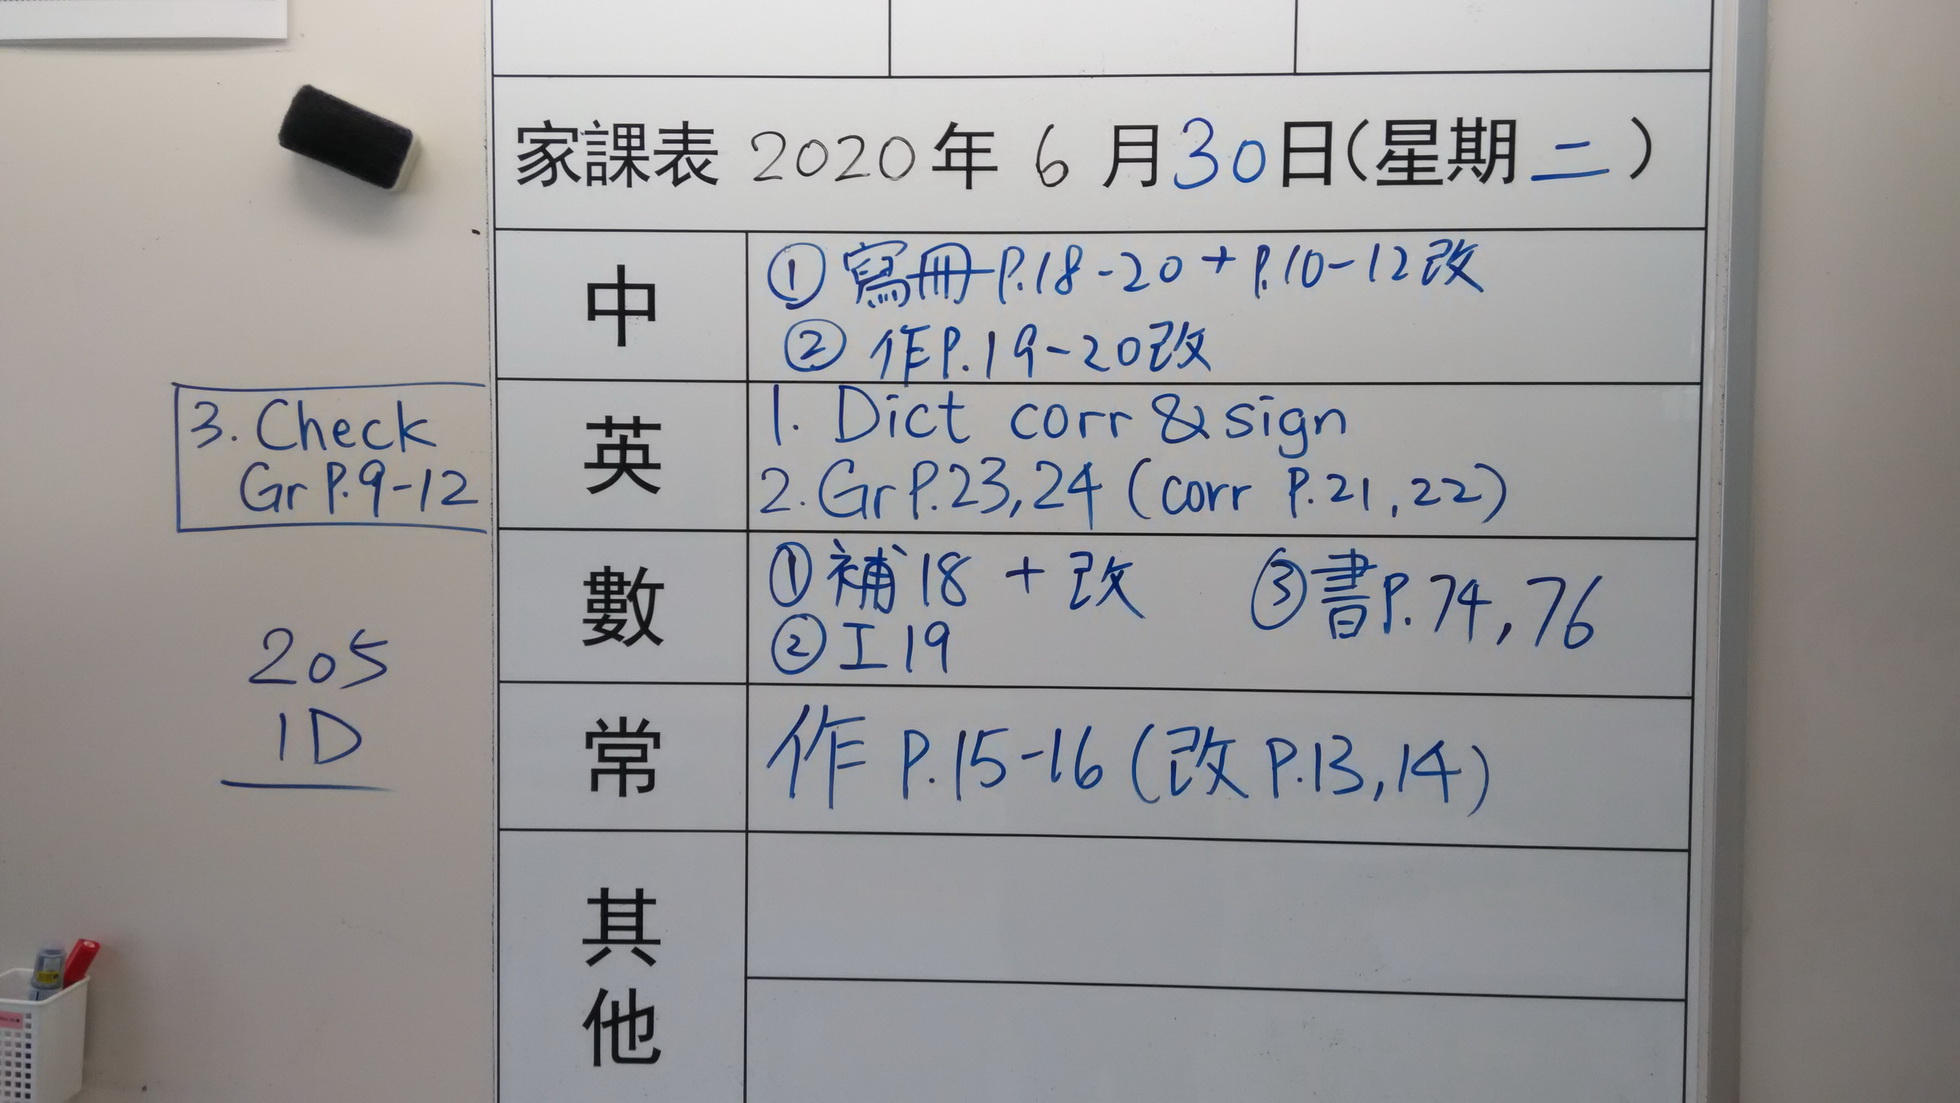 家課表 2020年 6月30日(星期二)
中
① 寫冊P.18-20 + P.10-12改
② 作P.19-20改
英
1. Dict corr & sign
2. Gr P.23,24 (corr P.21,22)
3. Check
Gr P.9-12
數
① 補18 + 改
② 工19
③ 書P.74,76
常
作 P.15-16 (改 P.13,14)
其
他
205
1D